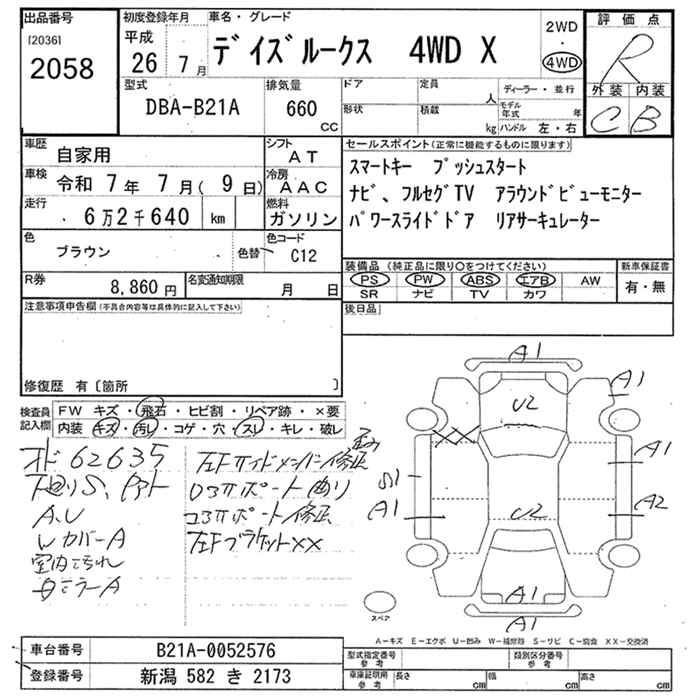 出品番号
[2036]
2058
初度登録年月
平成
26 7月
車名・グレード
デイズルークス 4WD X
2WD
・
4WD
評価点
R
外装 内装
C B
型式
DBA-B21A
排気量
660
CC
ドア
形状
定員
人
積載
kg
ディーラー・並行
モデル年式 年
ハンドル 左・右
車歴
自家用
シフト
AT
車検
令和 7年 7月( 9日)
冷房
AAC
走行
6万2千640 km
燃料
ガソリン
色
ブラウン
色替
色コード
C12
R券
8,860円
名変通知期限
月 日
セールスポイント(正常に機能するものに限ります)
スマートキー プッシュスタート
ナビ、フルセグTV アラウンドビューモニター
パワースライドドア リアサーキュレーター
装備品(純正品に限り〇をつけてください)
PS PW ABS エアB AW
SR ナビ TV カワ
新車保証書
有・無
後日品
注意事項申告欄(不具合内容等は具体的に記入して下さい)
修復歴 有〔箇所 〕
検査員
記入欄
FW キズ・飛石・ヒビ割・リペア跡・×要
内装・キズ・汚レ・コゲ・穴・スレ・キレ・破レ
62635
下廻りS、
A、U
カバーA
室内汚れ
左Fサイドメンバー修正
ロアサポート曲り
コアサポート修正
左FブラケットXX
A1
A1
U2
A1
S1
A1
A2
U2
A1
A1
スペア
A－キズ E－エクボ U－凹み W－補修跡 S－サビ C－腐食 XX－交換済
車台番号
B21A-0052576
登録番号
新潟 582 き 2173
型式指定番号
参考
類別区分番号
参考
車庫証明用
参考
長さ cm
幅 cm
高さ cm